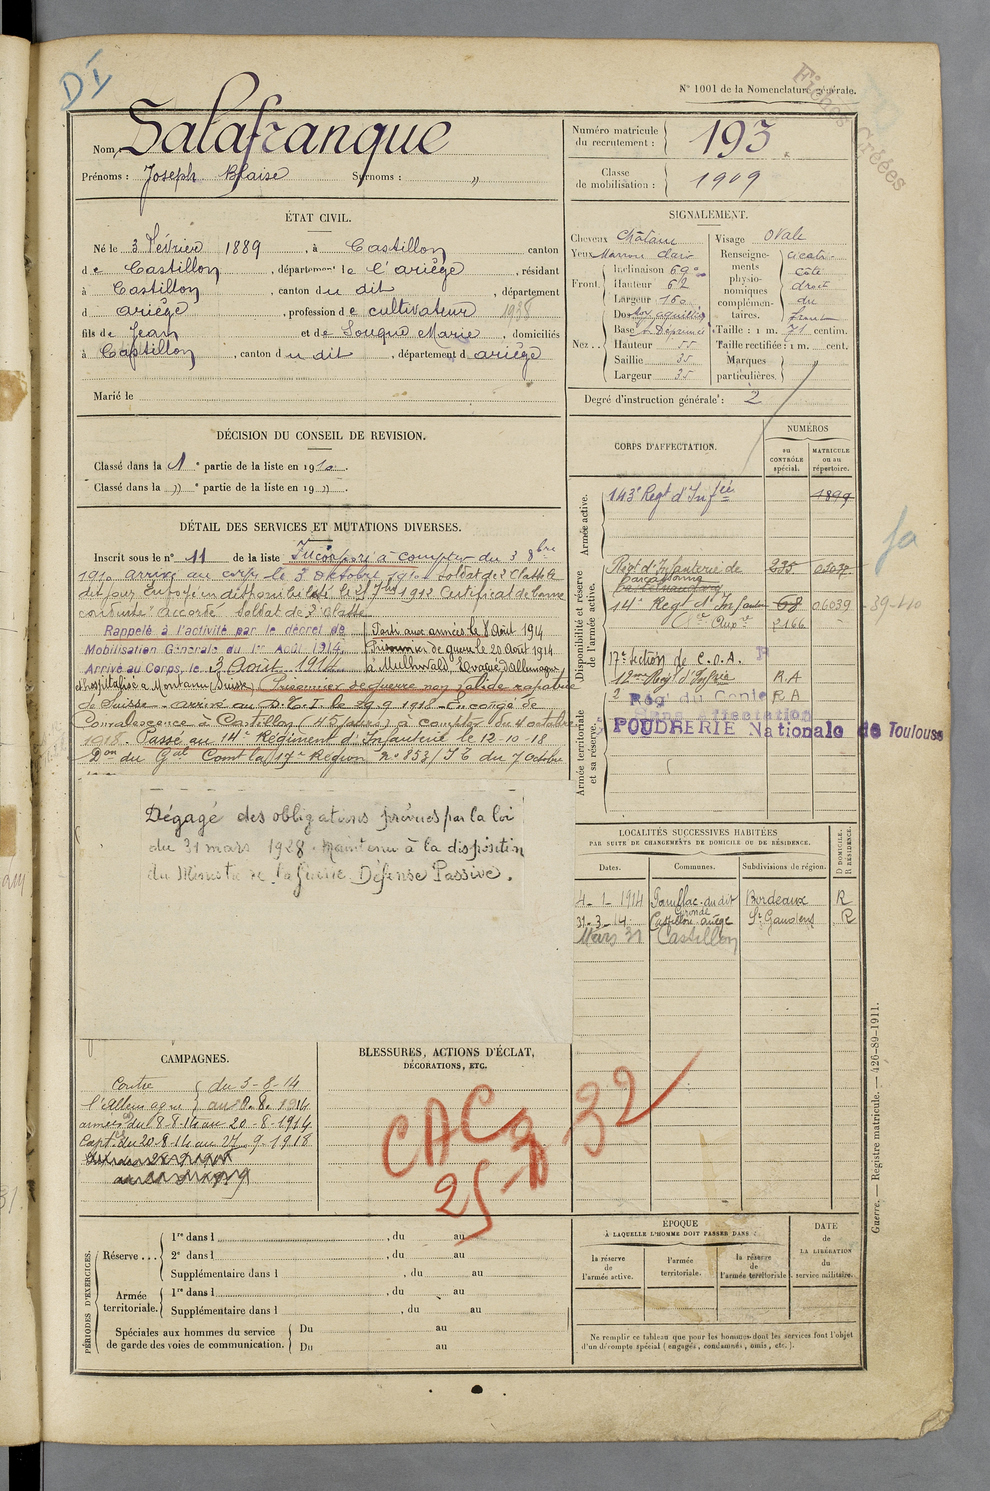 DI
Fiches Créées
N° 1001 de la Nomenclature générale.
Nom, Salafranque
Prénoms : Joseph Blaise Surnoms : "
Numéro matricule du recrutement : 193
Classe de mobilisation : 1909
ÉTAT CIVIL.
Né le 3 Février 1889, à Castillon canton
de Castillon, département de l'ariège, résidant
à Castillon, canton du dit, département
d ariège, profession de cultivateur 1938
fils de Jean et de Souque Marie, domiciliés
à Castillon, canton du dit, département d ariège
Marié le
SIGNALEMENT.
Cheveux Châtain
Yeux Marron clair
Front. Inclinaison
Hauteur 62
Largeur 160
Nez... Dos
Base Déprimée
Hauteur 55
Saillie 35
Largeur 35
Visage ovale
Renseignements physionomiques complémentaires. cicatr. côté droit du front
Taille : 1 m. 71 centim.
Taille rectifiée : 1 m. cent.
Marques particulières.
Degré d'instruction générale : 2
DÉCISION DU CONSEIL DE REVISION.
Classé dans la 1e partie de la liste en 1910.
Classé dans la " e partie de la liste en 19 ".
DÉTAIL DES SERVICES ET MUTATIONS DIVERSES.
Inscrit sous le n° 11 de la liste Incorporé à compter du 3 8bre
1910 arrivé au corps le 3 octobre 1910 soldat de 2e classe le
dit jour Envoyé en disponibilité le 27 7bre 1912 Certificat de bonne
conduite accordé Soldat de 2e classe
Rappelé à l'activité par le décret de
Mobilisation Générale du 1er Août 1914.
Arrivé au Corps, le 3 Août 1914
Parti aux armées le 8 Août 1914
Prisonnier de guerre le 20 Août 1914
à
et hospitalisé à Montana (Suisse) Prisonnier de guerre non valide rapatrié
de Suisse - arrivé au D. le 29-9-1918 - En congé de
Convalescence à Castillon (45 jours) à compter du 4 octobre
1918. Passé au 14e Régiment d'Infanterie le 12-10-18
Don du Gal Comt la 17e Région n° 853/ du 7 octobre
Dégagé des obligations prévues par la loi
du 31 mars 1928. Maintenu à la disposition
du Ministre de la Guerre. Défense Passive.
CORPS D'AFFECTATION.
NUMÉROS
au CONTRÔLE spécial.
MATRICULE ou au répertoire.
Armée active.
143e Regt d'Infrie 1899
Disponibilité et réserve de l'armée active.
Regt d'Infanterie de
14e Regt d'Infanterie 68 06039 -39-40
2166
17e Section de C.O.A.
Armée territoriale et sa réserve.
12me Regt d'Infrie RA
2 Rég du Génie RA
Sans affectation
POUDRERIE Nationale de Toulouse
LOCALITÉS SUCCESSIVES HABITÉES
PAR SUITE DE CHANGEMENTS DE DOMICILE OU DE RÉSIDENCE.
Dates. Communes. Subdivisions de région. D DOMICILE. R RÉSIDENCE.
4-1-1914 Pauillac du dit Gironde Bordeaux R
31-3-14. Castillon ariège St Gaudens R
Mars 31 Castillon
CAMPAGNES.
Contre l'Allemagne du 3-8-14
armées du 8-8-14 au 20-8-1914
Captté du 20-8-14 au 27-9-1918
BLESSURES, ACTIONS D'ÉCLAT,
DÉCORATIONS, ETC.
PÉRIODES D'EXERCICES.
Réserve... 1re dans l , du au
2e dans l , du au
Supplémentaire dans l , du au
Armée territoriale. 1re dans l , du au
Supplémentaire dans l , du au
Spéciales aux hommes du service de garde des voies de communication. Du au
Du au
ÉPOQUE
À LAQUELLE L'HOMME DOIT PASSER DANS :
la réserve de l'armée active.
l'armée territoriale.
la réserve de l'armée territoriale.
DATE de LA LIBÉRATION du service militaire.
Ne remplir ce tableau que pour les hommes dont les services font l'objet
d'un décompte spécial (engagés, condamnés, omis, etc.).
Guerre. — Registre matricule. — 426-89-1911.